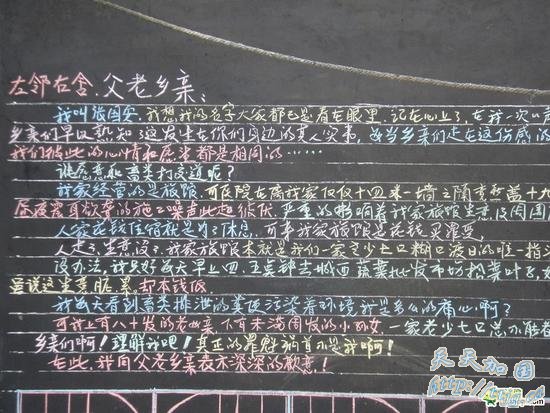 左邻右舍、父老乡亲、
我叫张国安，我想我的名字大家都已是看在眼里，记在心上了，在我一次
乡亲们早以熟知了这发生在你们身边的真人实事，每当乡亲们走在这伤感的
我们彼此的心情和感觉都是相同的……
谁愿意和畜类打交道呢？
我家经营的是旅馆，可医院在离我家仅仅十四米一墙之隔竟然盖十九
尽夜震耳欲聋的施工噪声此起彼伏，严重的影响着我家旅馆生意
人家花钱住宿就是为了休息，可来我家旅馆是花钱买罪受，
人走了，生意没了，我家旅馆本就是我们一家老少七口糊口渡日的唯一
没办法，我只好每天早上四、五点钟去城西蔬菜批发市场捡菜叶
虽说这生意脏、累，却本钱低
我每天看到畜类排泄的粪便污染着环境，我是多么的痛心啊？
可我上有八十岁的老母亲，下有未满周岁的小孙女，一家老少七口总不能
乡亲们啊！理解我吧！真正的罪魁祸首不是我啊！
在此，我向父老乡亲表示深深的歉意！
天天加图